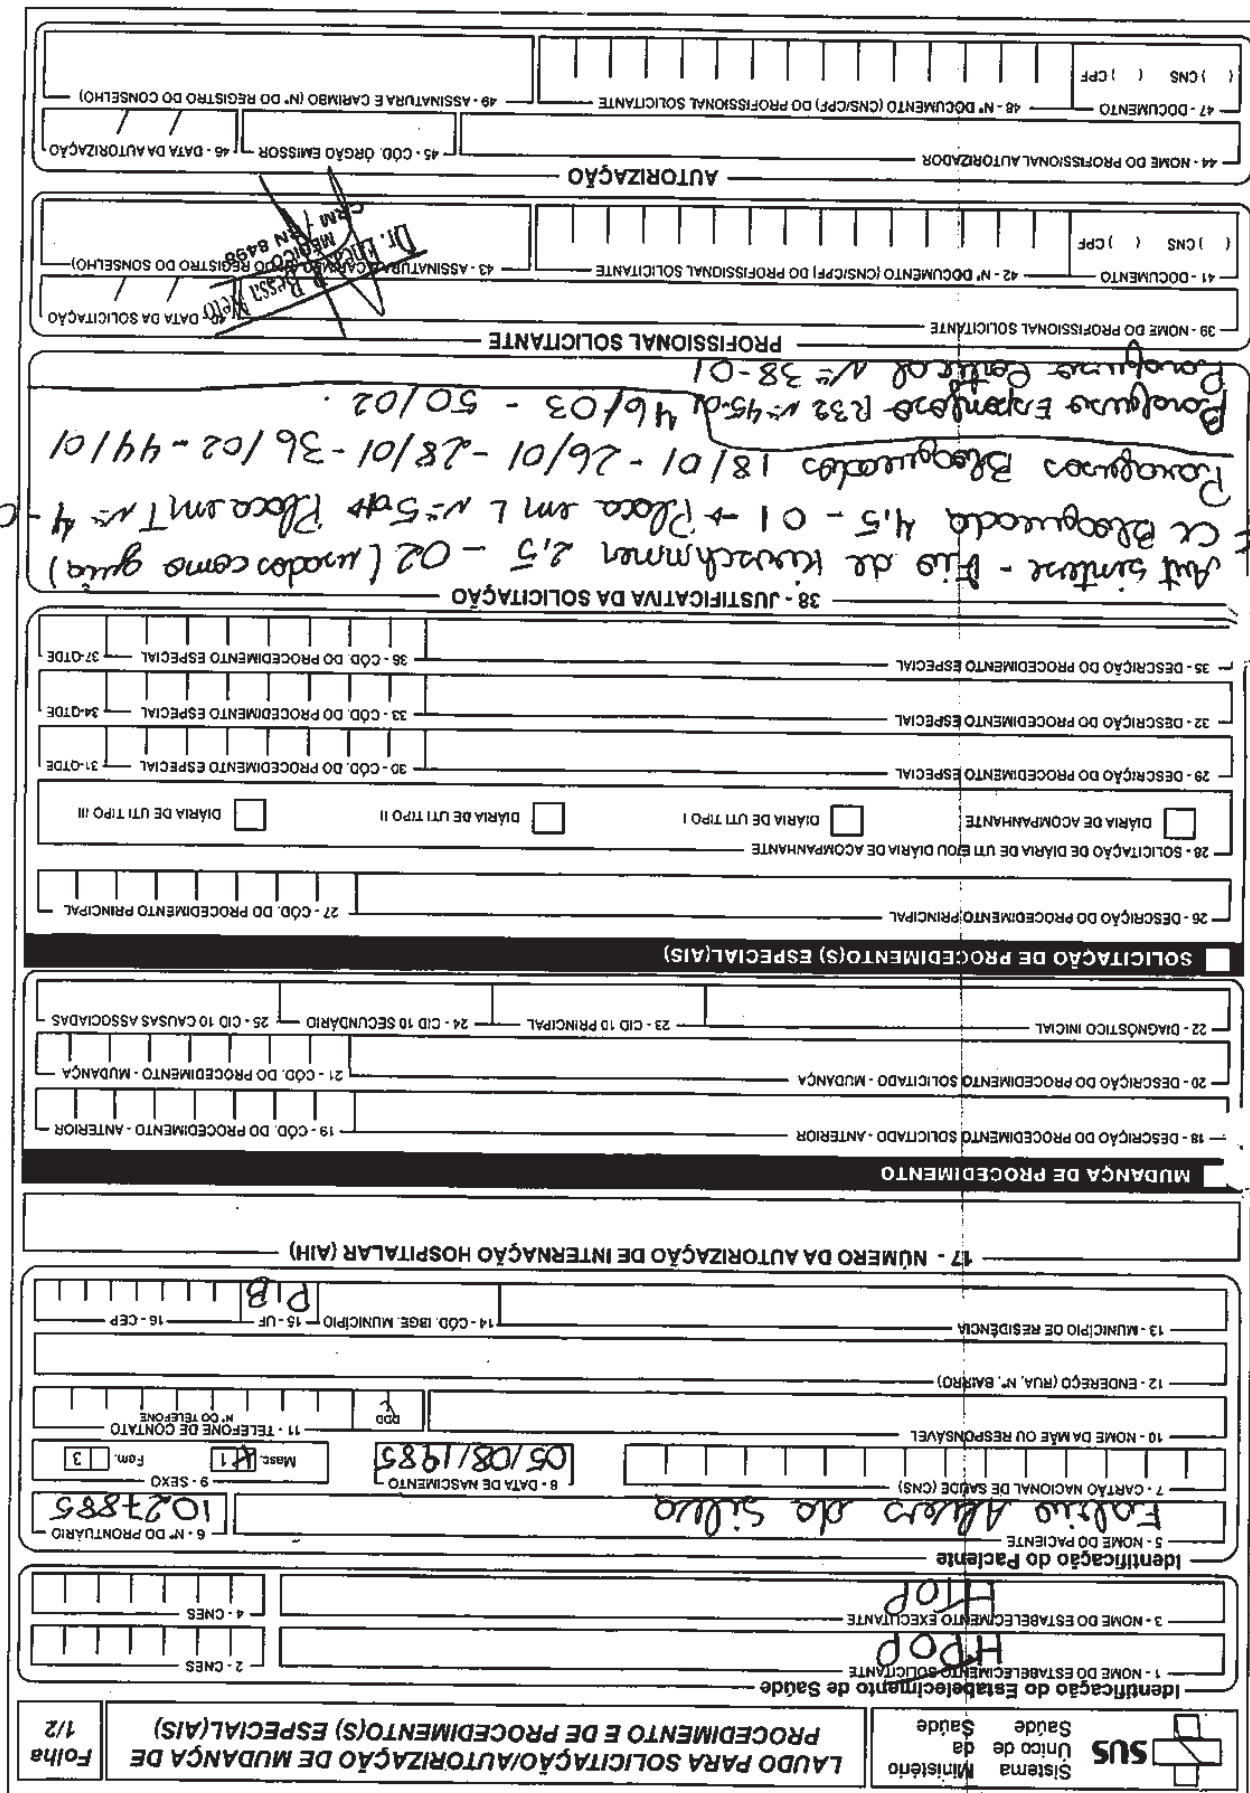 SUS
Sistema Único de Saúde
Ministério da Saúde
LAUDO PARA SOLICITAÇÃO/AUTORIZAÇÃO DE MUDANÇA DE PROCEDIMENTO E DE PROCEDIMENTO(S) ESPECIAL(AIS)
Folha 1/2
Identificação do Estabelecimento de Saúde
1 - NOME DO ESTABELECIMENTO SOLICITANTE
2 - CNES
3 - NOME DO ESTABELECIMENTO EXECUTANTE
4 - CNES
Identificação do Paciente
5 - NOME DO PACIENTE
Alves da Silva
6 - Nº DO PRONTUÁRIO
1027885
7 - CARTÃO NACIONAL DE SAÚDE (CNS)
8 - DATA DE NASCIMENTO
05/08/1985
9 - SEXO
Masc. 1 Fem. 3
10 - NOME DA MÃE OU RESPONSÁVEL
11 - TELEFONE DE CONTATO
DDD Nº DO TELEFONE
12 - ENDEREÇO (RUA, Nº, BAIRRO)
13 - MUNICÍPIO DE RESIDÊNCIA
14 - CÓD. IBGE. MUNICÍPIO
15 - UF
PB
16 - CEP
17 - NÚMERO DA AUTORIZAÇÃO DE INTERNAÇÃO HOSPITALAR (AIH)
MUDANÇA DE PROCEDIMENTO
18 - DESCRIÇÃO DO PROCEDIMENTO SOLICITADO - ANTERIOR
19 - CÓD. DO PROCEDIMENTO - ANTERIOR
20 - DESCRIÇÃO DO PROCEDIMENTO SOLICITADO - MUDANÇA
21 - CÓD. DO PROCEDIMENTO - MUDANÇA
22 - DIAGNÓSTICO INICIAL
23 - CID 10 PRINCIPAL
24 - CID 10 SECUNDÁRIO
25 - CID 10 CAUSAS ASSOCIADAS
SOLICITAÇÃO DE PROCEDIMENTO(S) ESPECIAL(AIS)
26 - DESCRIÇÃO DO PROCEDIMENTO PRINCIPAL
27 - CÓD. DO PROCEDIMENTO PRINCIPAL
28 - SOLICITAÇÃO DE DIÁRIA DE UTI E/OU DIÁRIA DE ACOMPANHANTE
DIÁRIA DE ACOMPANHANTE DIÁRIA DE UTI TIPO I DIÁRIA DE UTI TIPO II DIÁRIA DE UTI TIPO III
29 - DESCRIÇÃO DO PROCEDIMENTO ESPECIAL
30 - CÓD. DO PROCEDIMENTO ESPECIAL
31-QTDE
32 - DESCRIÇÃO DO PROCEDIMENTO ESPECIAL
33 - CÓD. DO PROCEDIMENTO ESPECIAL
34-QTDE
35 - DESCRIÇÃO DO PROCEDIMENTO ESPECIAL
36 - CÓD. DO PROCEDIMENTO ESPECIAL
37-QTDE
38 - JUSTIFICATIVA DA SOLICITAÇÃO
Art sintese - Fio de Kirschmmer 2,5 - 02 (usados como guia)
Bloqueada 4,5 - 01 → Placa em L nº 5 Placa em T nº 4 -
Parafusos Bloqueados 18/01 - 26/01 - 28/01 - 36/02 - 44/01
46/03 - 50/02.
Parafuso Esponjoso R32 nº 45-01
Parafuso Cortical nº 38-01
PROFISSIONAL SOLICITANTE
39 - NOME DO PROFISSIONAL SOLICITANTE
40 - DATA DA SOLICITAÇÃO
/ /
41 - DOCUMENTO
( ) CNS ( ) CPF
42 - Nº DOCUMENTO (CNS/CPF) DO PROFISSIONAL SOLICITANTE
43 - ASSINATURA E CARIMBO (Nº DO REGISTRO DO SONSELHO)
Dr. Bessa Neto
MÉDICO
CRM / RN 8498
AUTORIZAÇÃO
44 - NOME DO PROFISSIONAL AUTORIZADOR
45 - CÓD. ÓRGÃO EMISSOR
46 - DATA DA AUTORIZAÇÃO
/ /
47 - DOCUMENTO
( ) CNS ( ) CPF
48 - Nº DOCUMENTO (CNS/CPF) DO PROFISSIONAL SOLICITANTE
49 - ASSINATURA E CARIMBO (Nº DO REGISTRO DO CONSELHO)